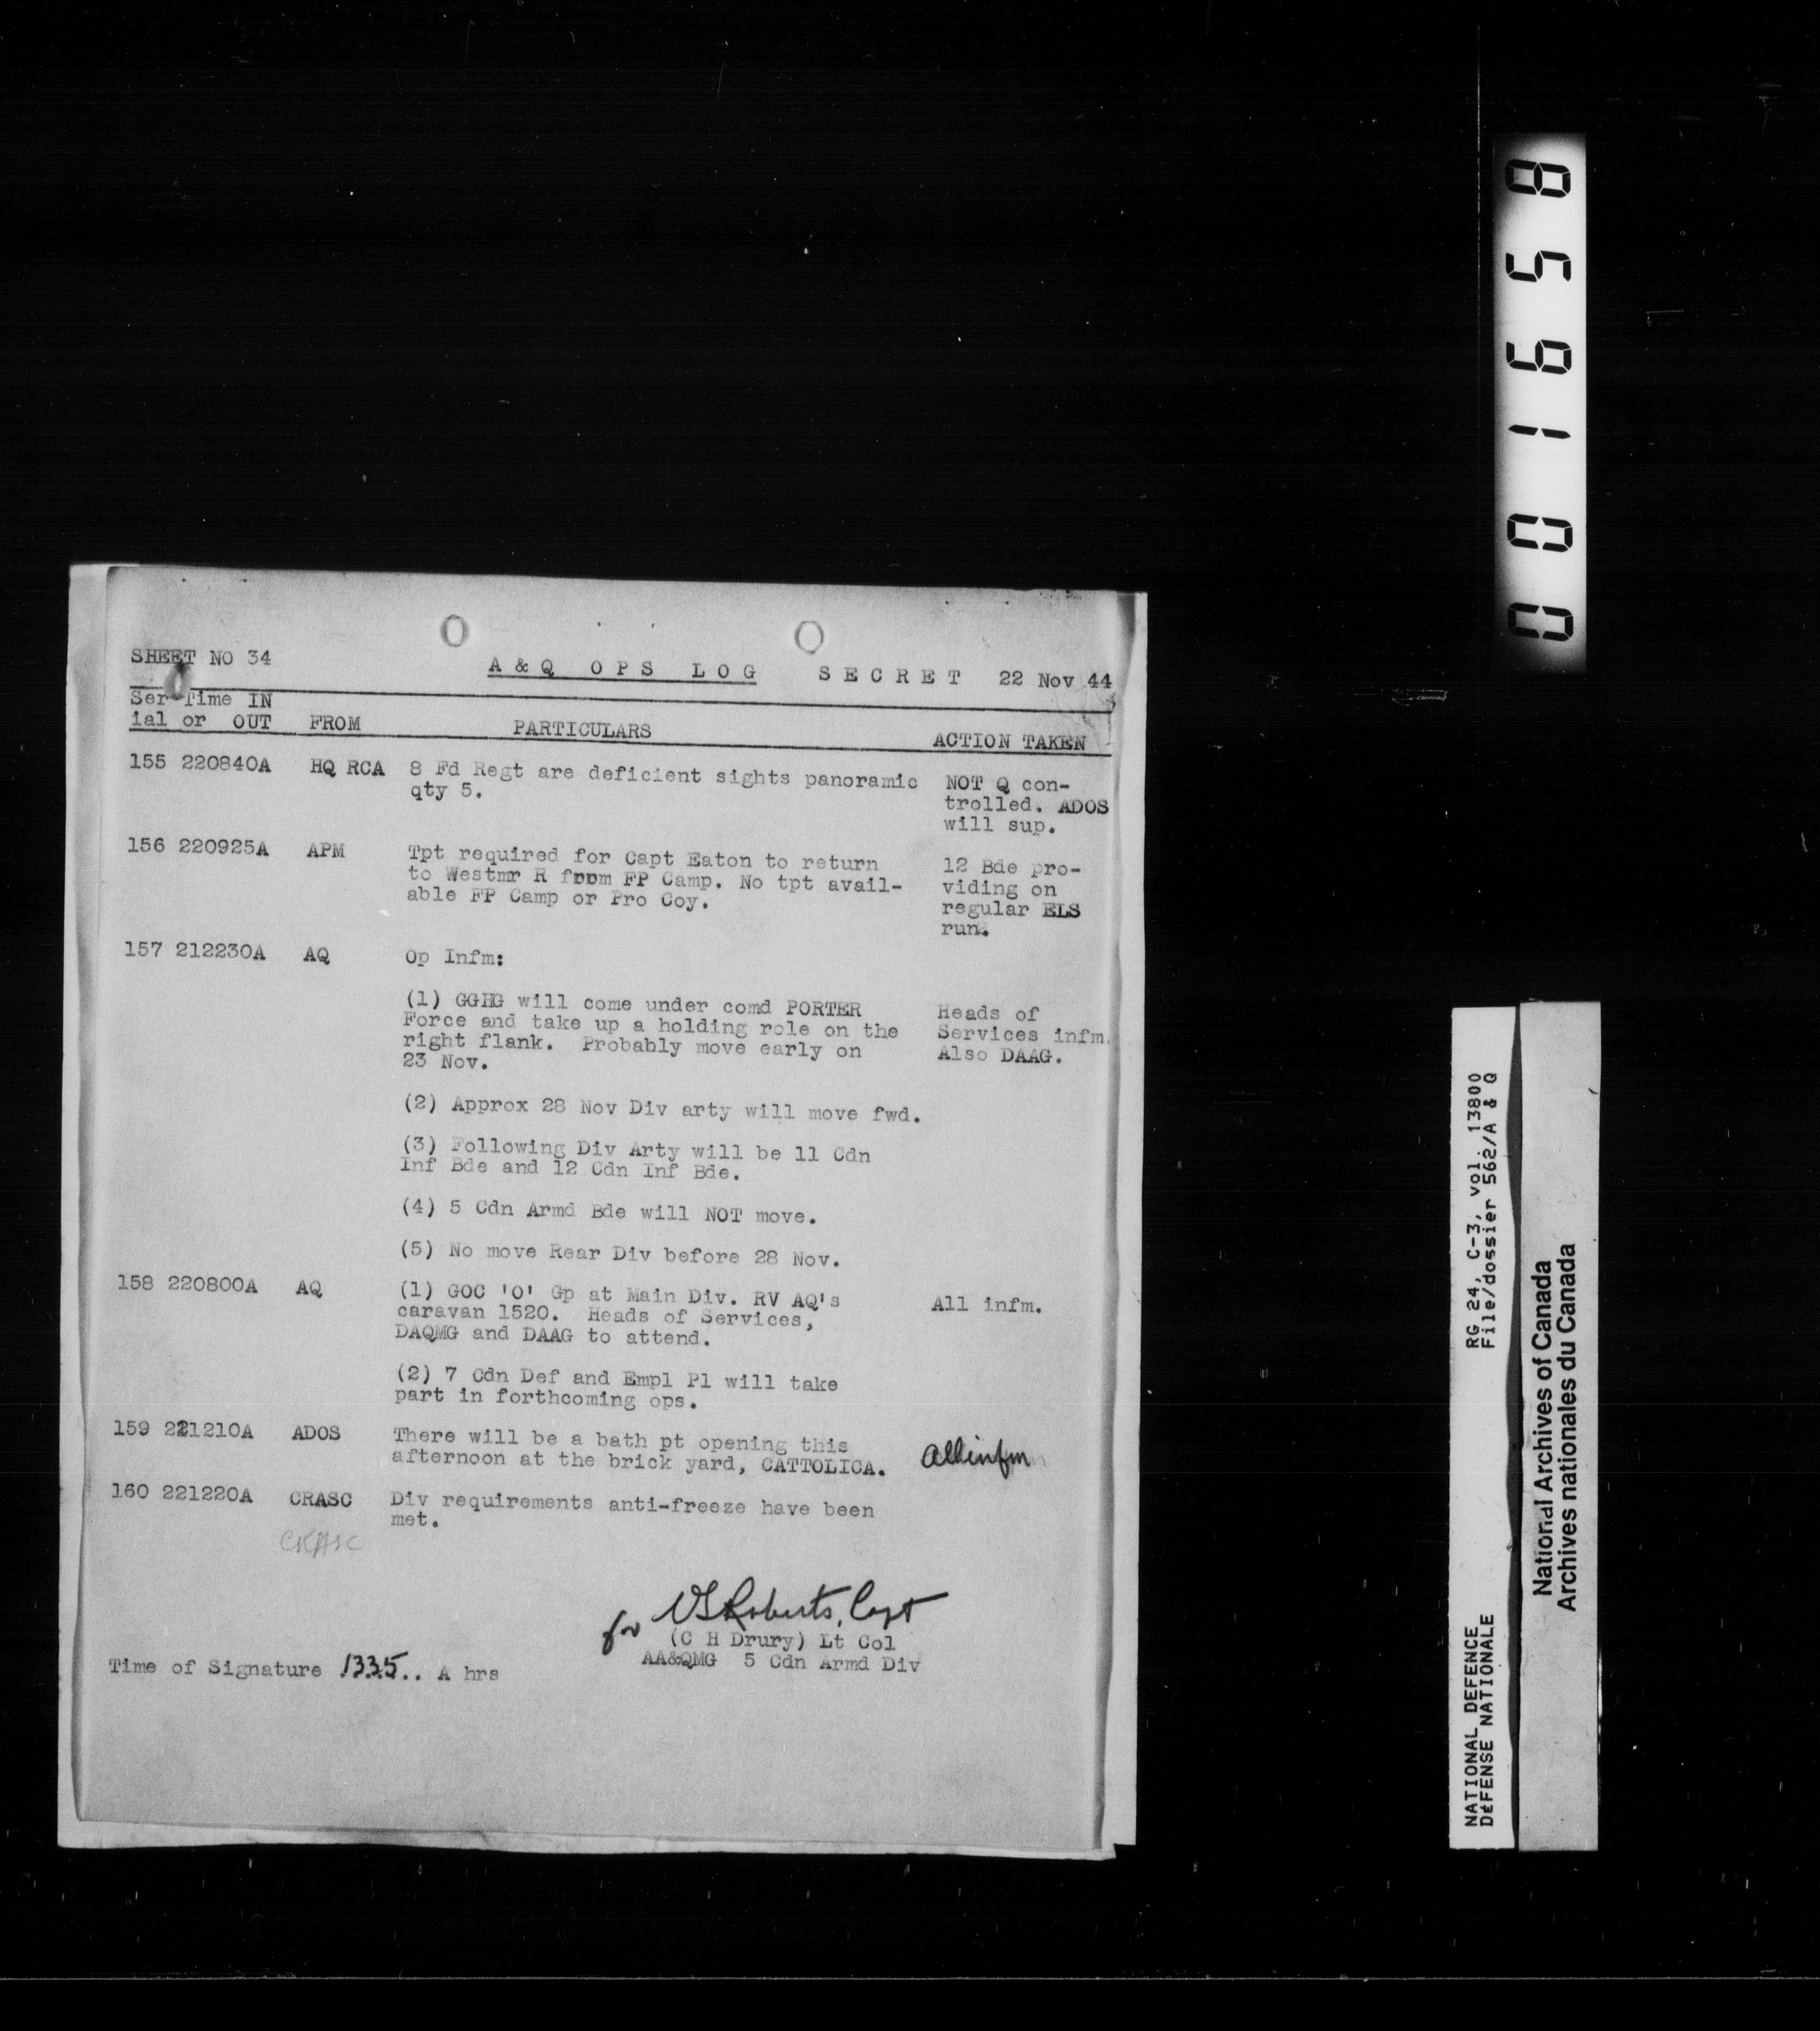 001658
SHEET NO 34
A & Q   O P S   L O G   S E C R E T   22 Nov 44
Ser-Time IN
ial or OUT   FROM   PARTICULARS   ACTION TAKEN
155 220840A   HQ RCA   8 Fd Regt are deficient sights panoramic
qty 5.
NOT Q con-
trolled. ADOS
will sup.
156 220925A   APM   Tpt required for Capt Eaton to return
to Westmr R from FP Camp. No tpt avail-
able FP Camp or Pro Coy.
12 Bde pro-
viding on
regular ELS
run.
157 212230A   AQ   Op Infm:
(1) GGHG will come under comd PORTER
Force and take up a holding role on the
right flank.  Probably move early on
23 Nov.
Heads of
Services infm.
Also DAAG.
(2) Approx 28 Nov Div arty will move fwd.
(3) Following Div Arty will be 11 Cdn
Inf Bde and 12 Cdn Inf Bde.
(4) 5 Cdn Armd Bde will NOT move.
(5) No move Rear Div before 28 Nov.
158 220800A   AQ   (1) GOC 'O' Gp at Main Div. RV AQ's
caravan 1520.  Heads of Services,
DAQMG and DAAG to attend.
All infm.
(2) 7 Cdn Def and Empl Pl will take
part in forthcoming ops.
159 221210A   ADOS   There will be a bath pt opening this
afternoon at the brick yard, CATTOLICA.
All infm
160 221220A   CRASC   Div requirements anti-freeze have been
met.
CRASC
for   Roberts, Capt
(C H Drury) Lt Col
AA&QMG   5 Cdn Armd Div
Time of Signature .1335.. A hrs
NATIONAL DEFENCE   RG 24, C-3, vol. 13800
DÉFENSE NATIONALE   File/dossier 562/A & Q
National Archives of Canada
Archives nationales du Canada